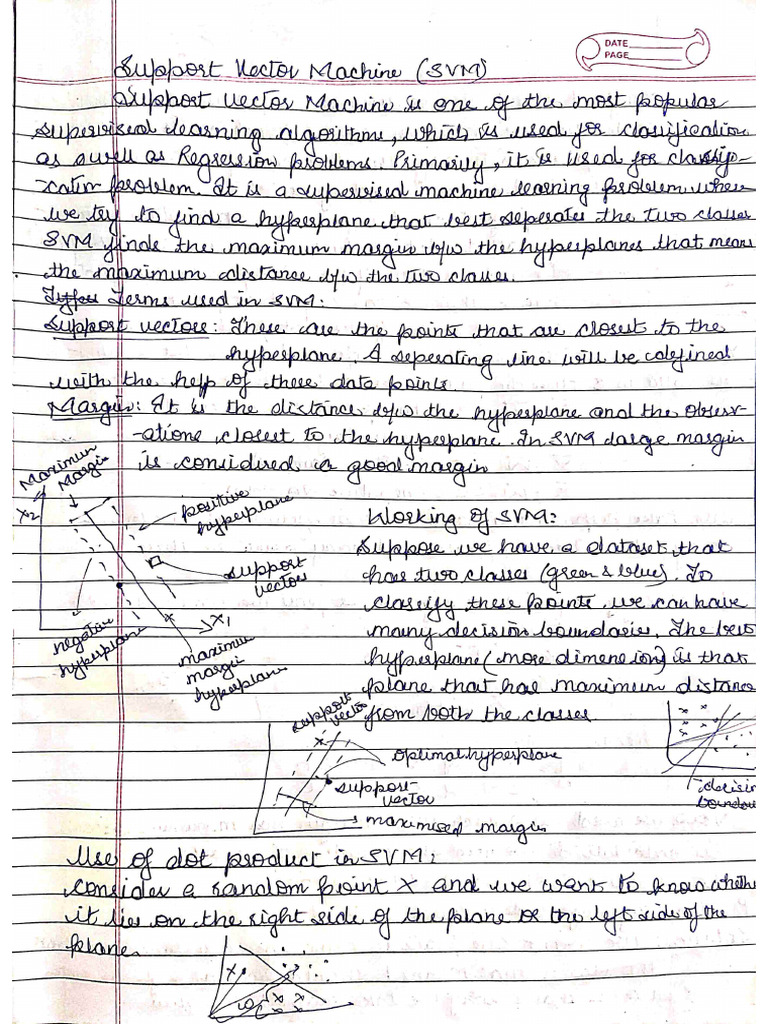 DATE
PAGE
Support Vector Machine (SVM)
Support Vector Machine is one of the most popular
supervised learning algorithms, which is used for classification
as well as Regression problems. Primarily, it is used for classifi-
-cation problem. It is a supervised machine learning problem where
we try to find a hyperplane that best seperates the two classes
SVM finds the maximum margin b/w the hyperplanes that means
the maximum distance b/w the two classes.
Terms used in SVM:
Support vectors: These are the points that are closest to the
hyperplane. A seperating line will be defined
with the help of these data points.
Margin: It is the distance b/w the hyperplane and the observ-
-ations closest to the hyperplane. In SVM large margin
is considered a good margin
Maximum
Margin
X2
positive
hyperplane
support
vectors
X1
negative
hyperplane
maximum
margin
hyperplane
Working of SVM:
Suppose we have a dataset that
has two classes (green & blue). To
classify these points, we can have
many decision boundaries. The best
hyperplane (more dimension) is that
plane that has maximum distance
from both the classes.
support
vector
optimal hyperplane
support
vector
maximised margin
decision
boundary
Use of dot product in SVM:
Consider a random point X and we want to know whether
it lies on the right side of the plane or the left side of the
plane.
X